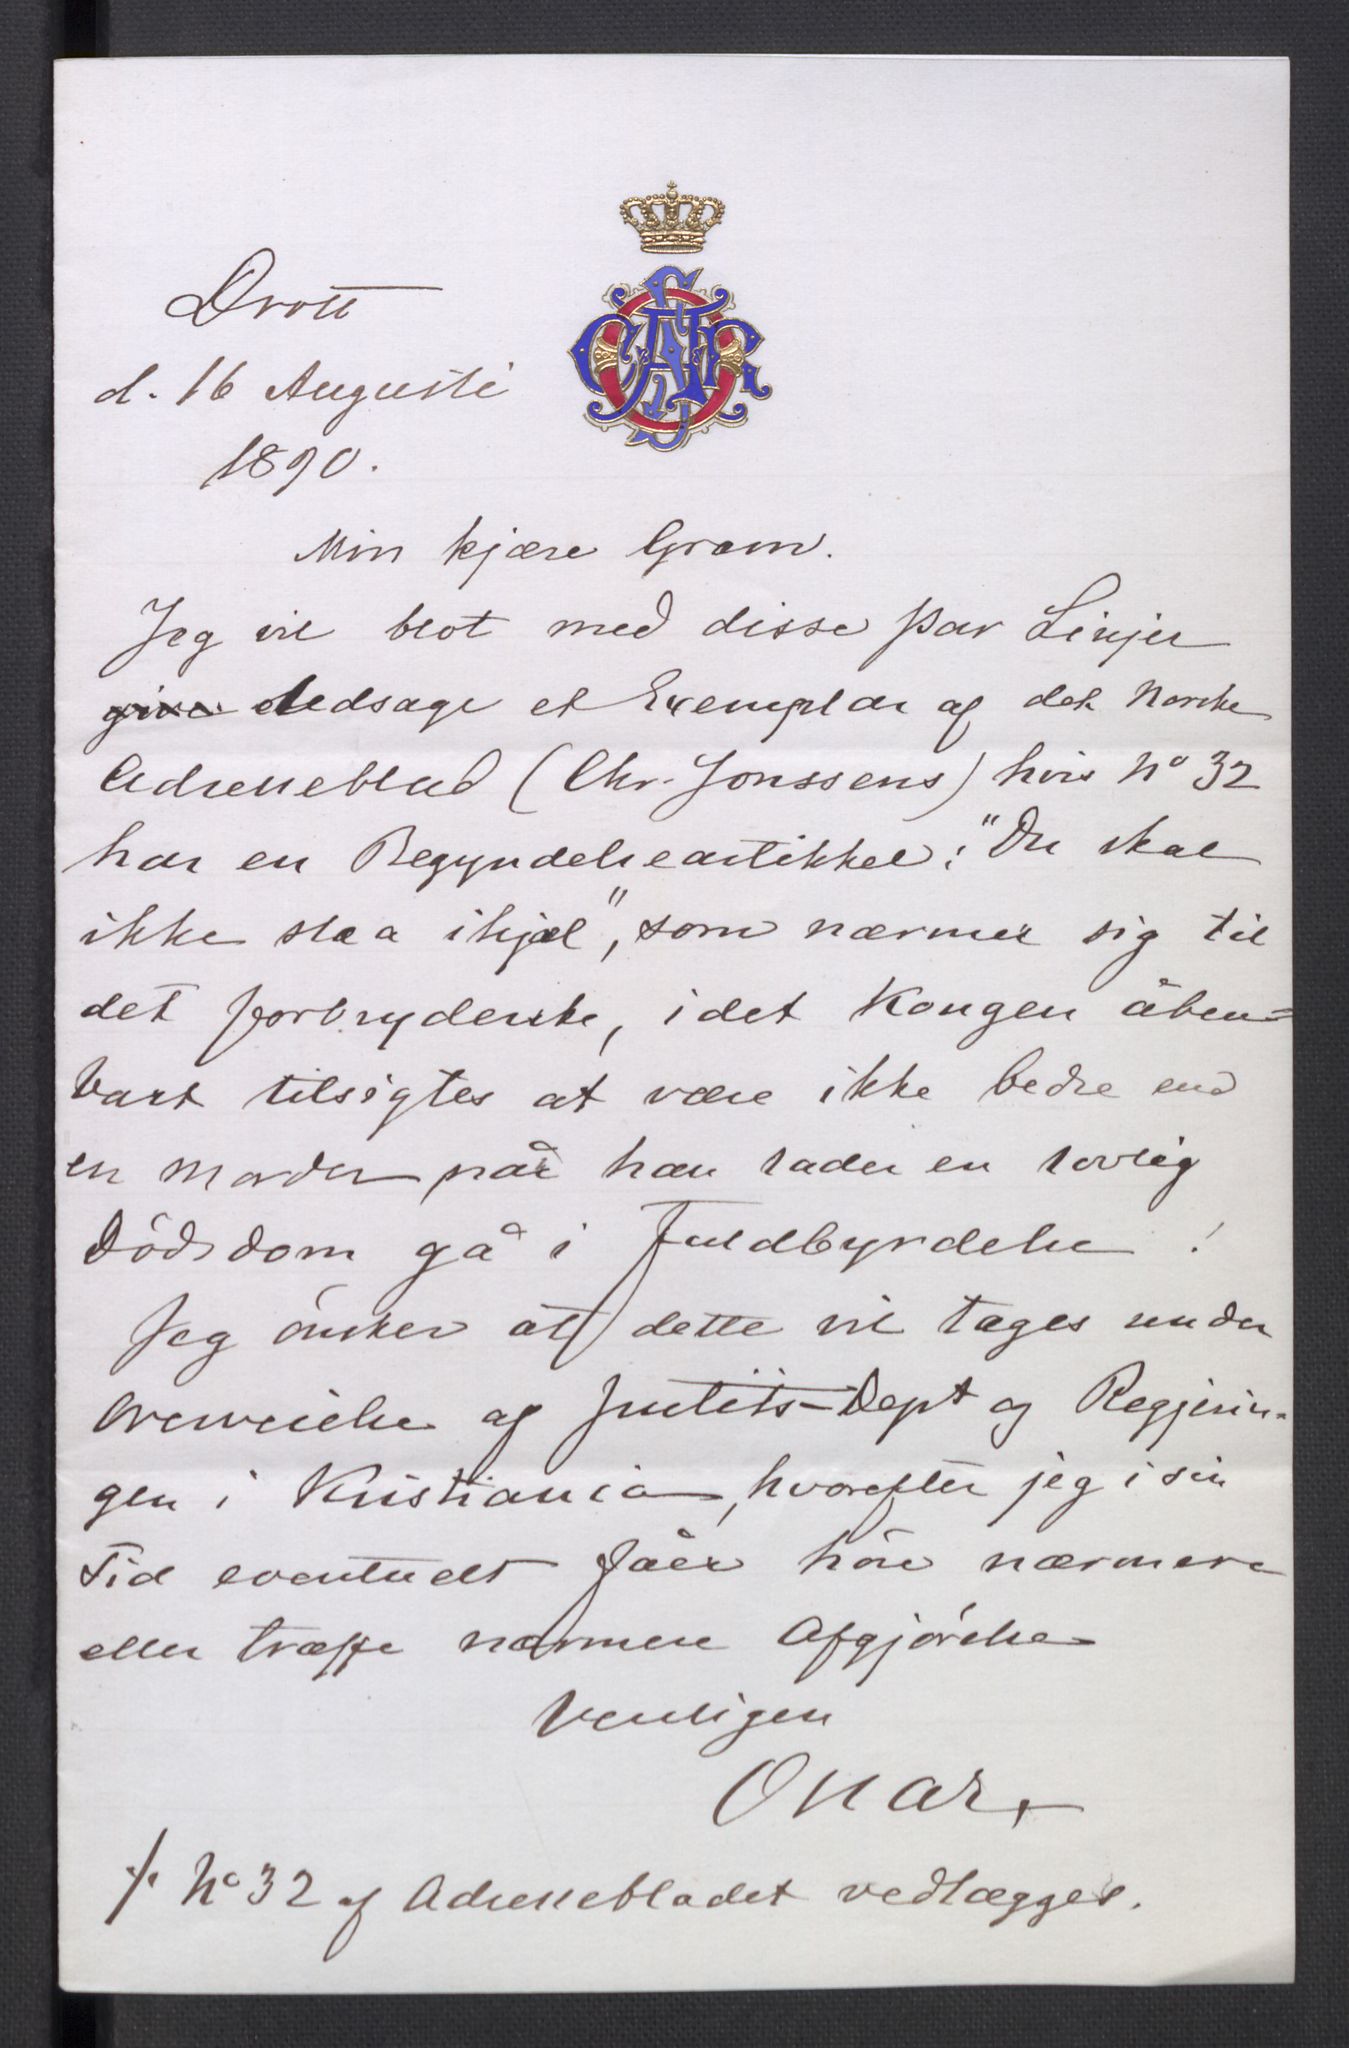 Drott
d. 16 Augusti
1890.
Min kjære Gram.
Jeg vil blot med disse Par Linjer
give ledsage et Exemplar af det Norske
Adresseblad (Chr. Jonssens) hvis No 32
har en Begyndelseartikkel: "Du skal
ikke slaa ihjel", som nærmer sig til
det forbryderske, idet Kongen åben=
bart tilsigtes at være ikke bedre end
en Morder når han lader en lovlig
Dödsdom gå i Fuldbyrdelse!
Jeg önsker at dette vil tages under
Overveielse af Justits-Dept og Regjerin-
gen i Kristiania, hvorefter jeg i sin
Tid eventuelt fåer höre nærmere
eller træffe nærmere Afgjörelse
Venligen
Oscar
./. No 32 af Adressebladet vedlægges.